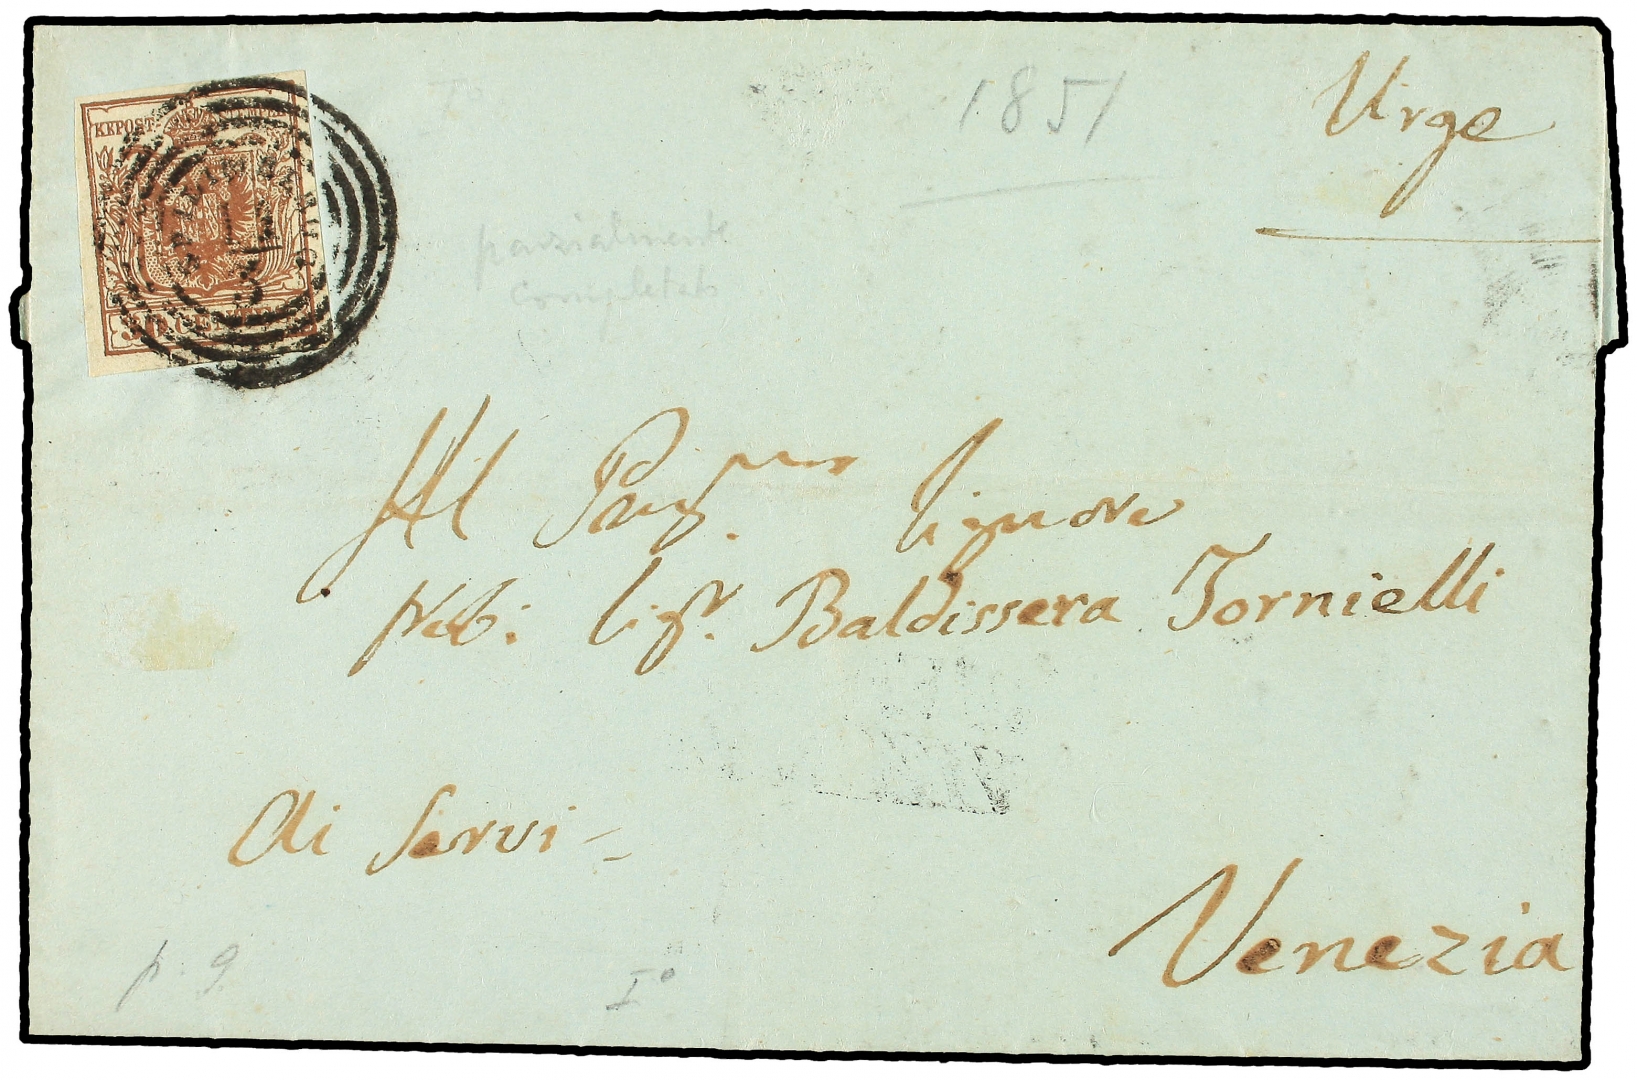 KKPOST-STEMPEL
30 CENTES
1851
Urge
parzialmente
completato
Al Preg.mo Signore
Nob: Sigr. Baldissera Tornielli
di Servi -
Venezia
p. 9
I°